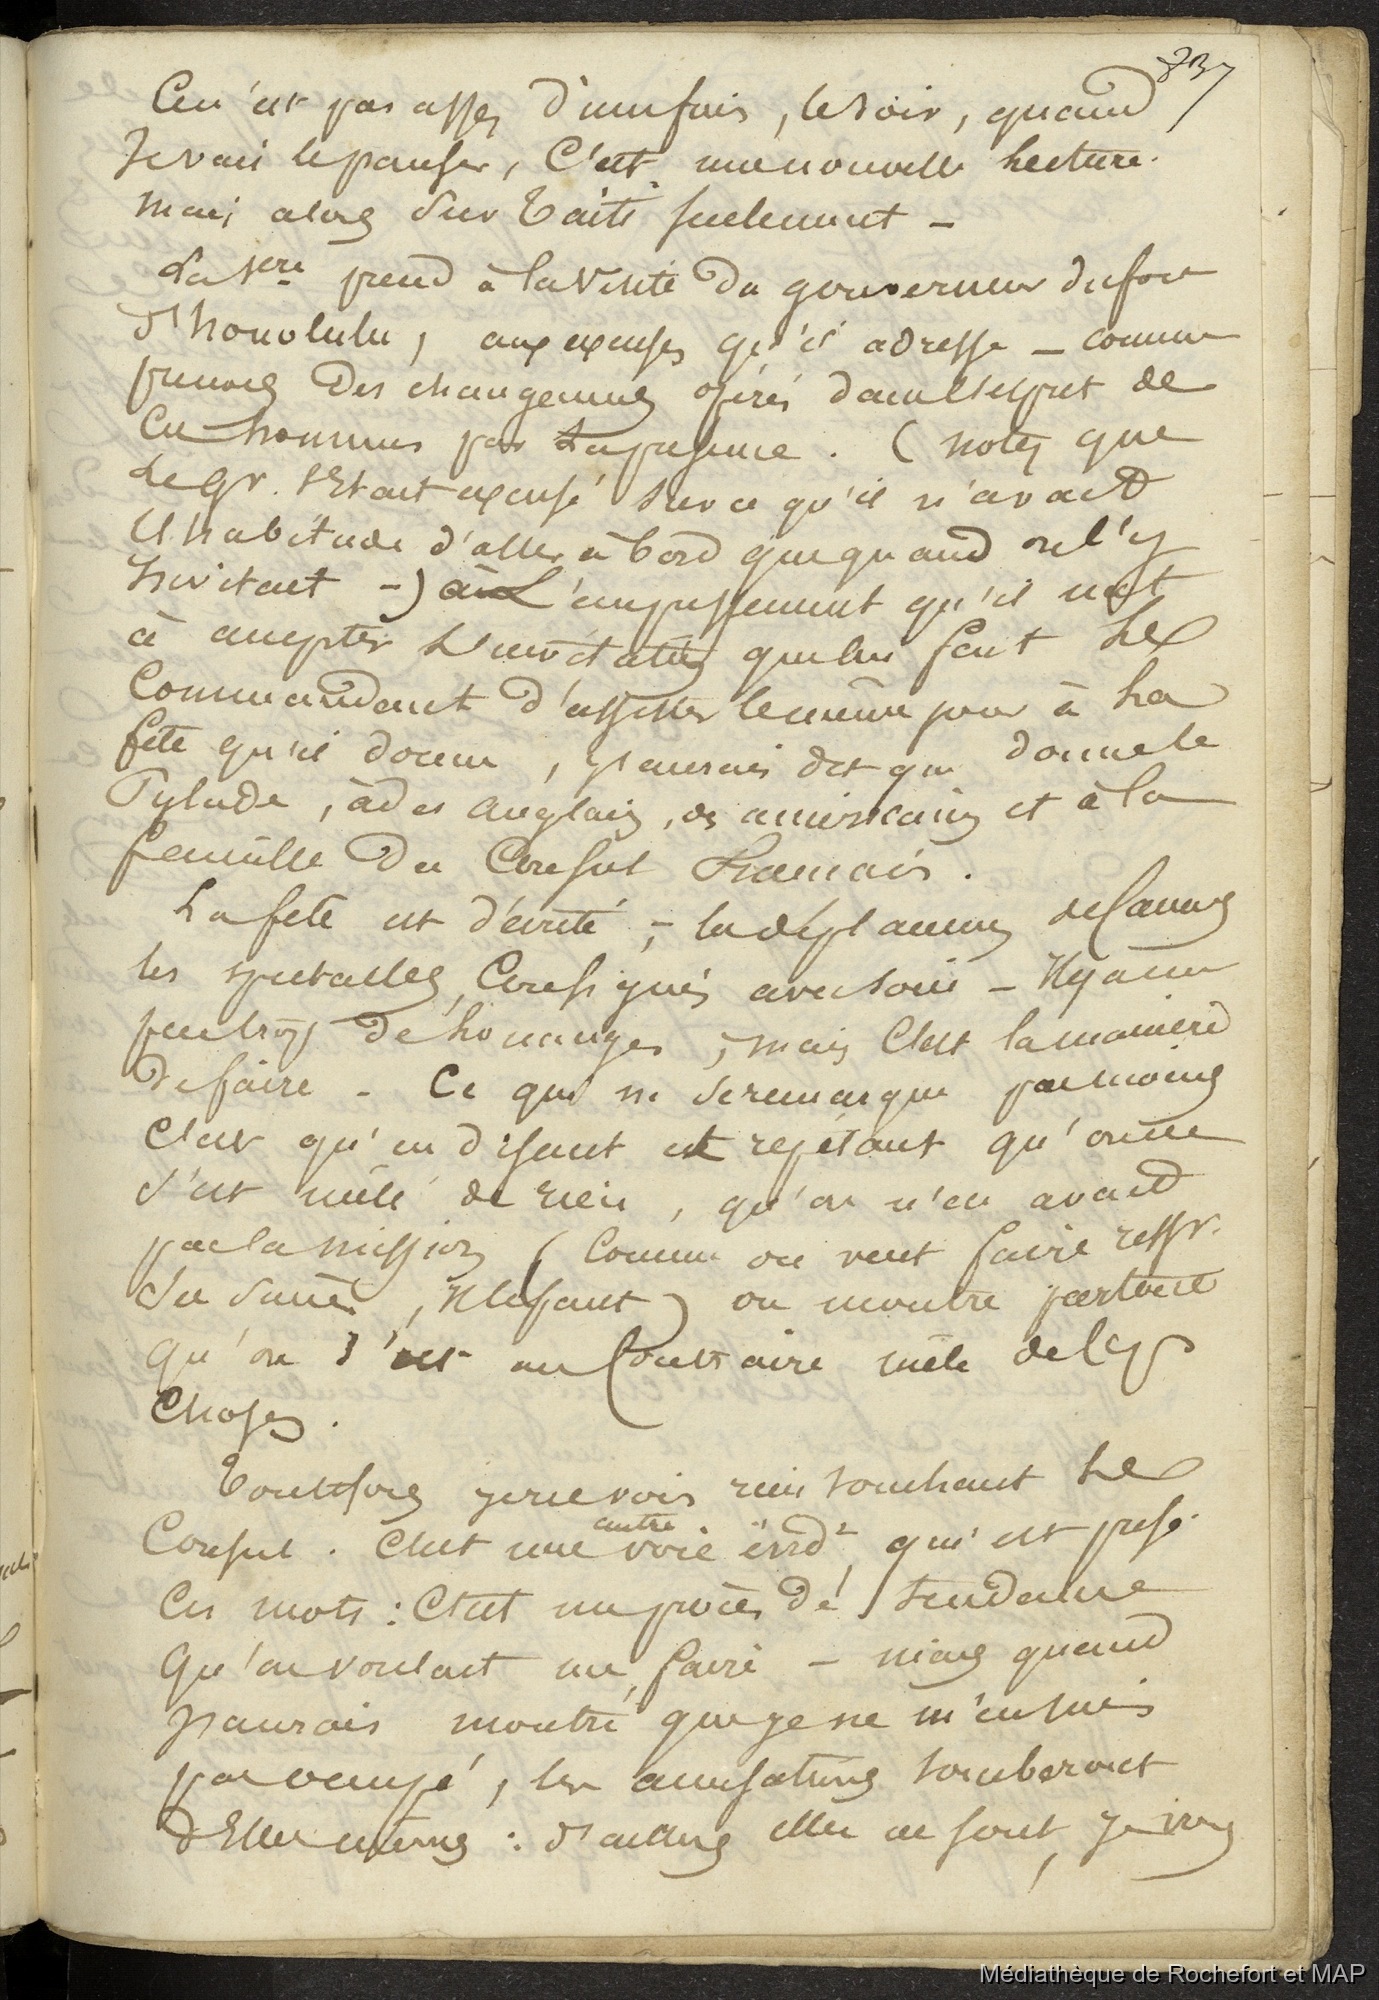 837
Ce n'est pas assez d'une fois, le soir, quand
Je vais le panser, C'est une nouvelle lecture.
mais alors sur Taïti seulement —
La 1ere prend à la Visite du gouverneur du fort
d'honolulu, aux excuses qu'il adresse — comme
preuves des changements opérés dans l'esprit de
Ces hommes par La présence. (notez que
Le Gr. s'Etait excusé sur ce qu'il n'avait
l'habitude d'aller à bord que quand on l'y
Invitait —) à L'empressement qu'il met
à accepter L'invitation que lui fait Le
Commandant d'assister le même jour à La
fête qu'il donne, j'aurais dit que donne le
Pylade, à des anglais, des américains et à la
famille du Consul français.
La fête est décrite, — les déplacements de Canons
les spectacles, Consignés avec soin — Il y a une
peu trop de louanges, mais C'est la manière
de faire — Ce qui ne se remarque pas moins
C'est qu'en disant et répétant qu'on ne
s'est mêlé de rien, qu'on n'en avait
pas la mission (Comme on veut faire
, Il le faut) on montre partout
qu'on s'est au Contraire mêlé de
Choses.
Toutefois je ne vois rien touchant Le
Consul. C'est une autre voie qui est prise.
Ces mots: C'est un procès de tendance
Qu'on voulait me faire — mais quand
J'aurais montré que je ne m'en suis
pas occupé, les accusations tomberont
d'Elles mêmes: d'ailleurs elles ne sont, je